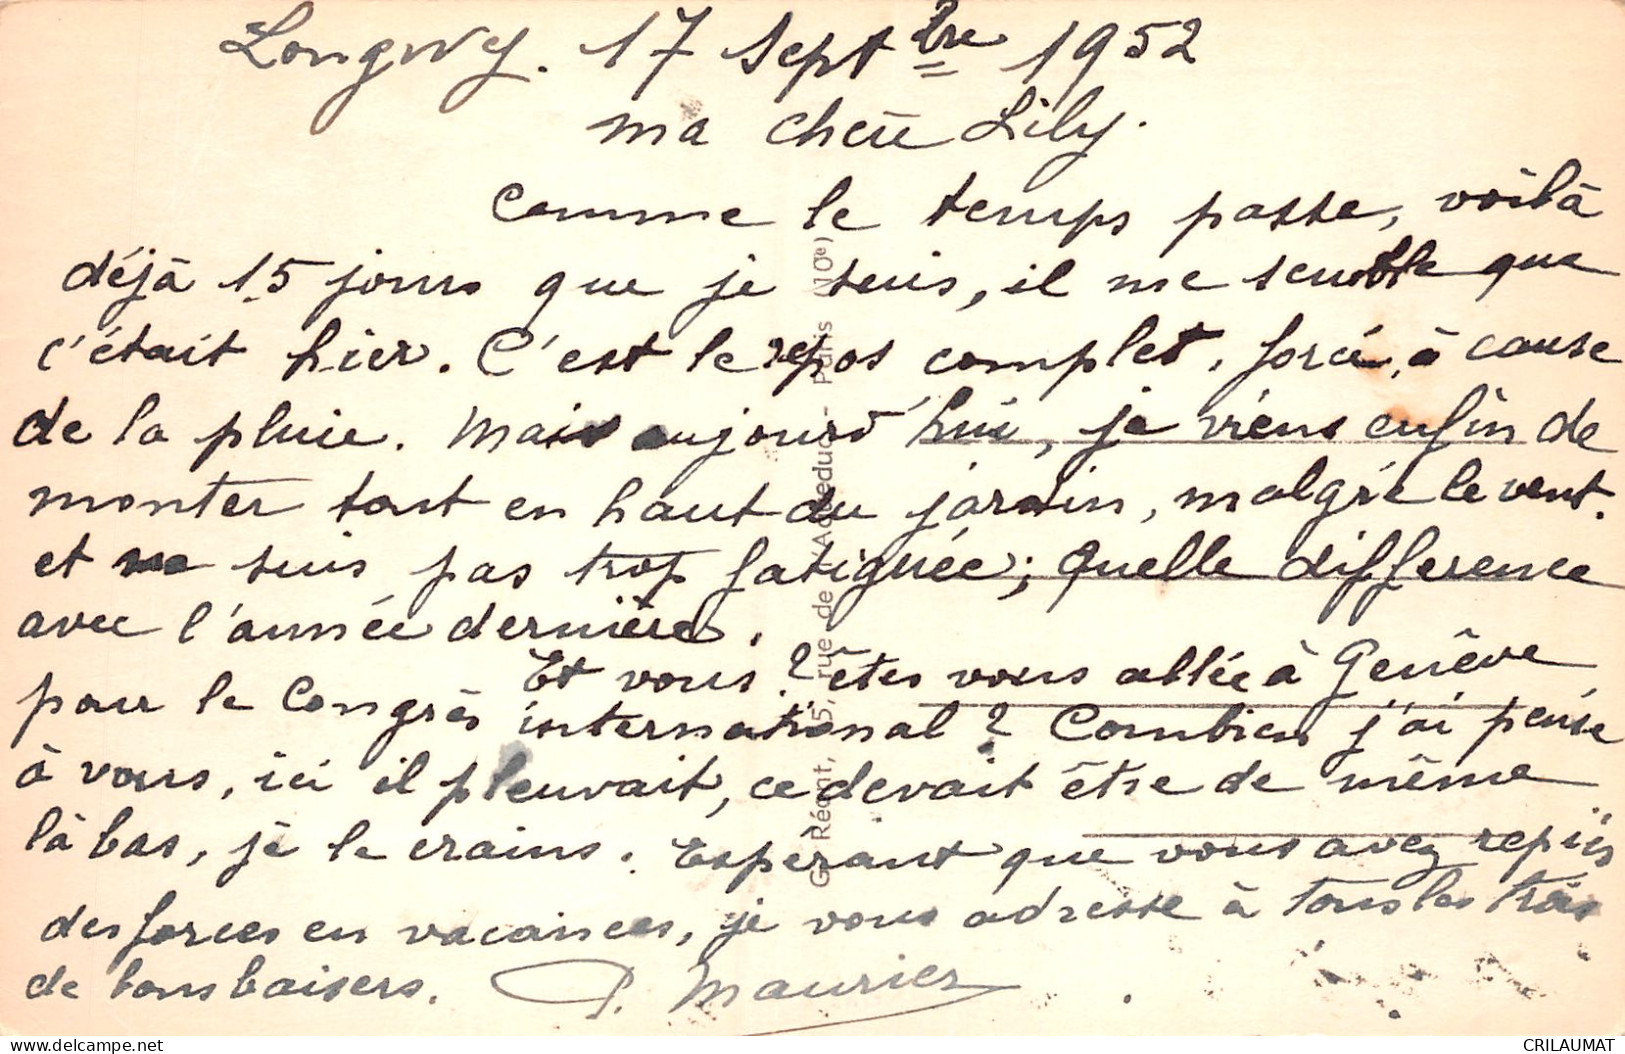 Longwy. 17 Septbre 1952
ma chère Lily.
Comme le temps passe, voilà
déjà 15 jours que je suis, il me semble que
c'était hier. C'est le repos complet, forcé, à cause
de la pluie. Mais aujourd'hui, je viens enfin de
monter tout en haut du jardin, malgré le vent.
et ne suis pas trop fatiguée; Quelle difference
avec l'année dernière.
Et vous? êtes vous allée à Genève
pour le Congrès international? Combien j'ai pensé
à vous, ici il pleuvait, ce devait être de même
là bas, je le crains. Espérant que vous avez repris
des forces en vacances, je vous adresse à tous les trois
de bons baisers. P. Maurier
G. Réant, 5, rue de l'Aqueduc - Paris (10e)
delcampe.net
CRILAUMAT